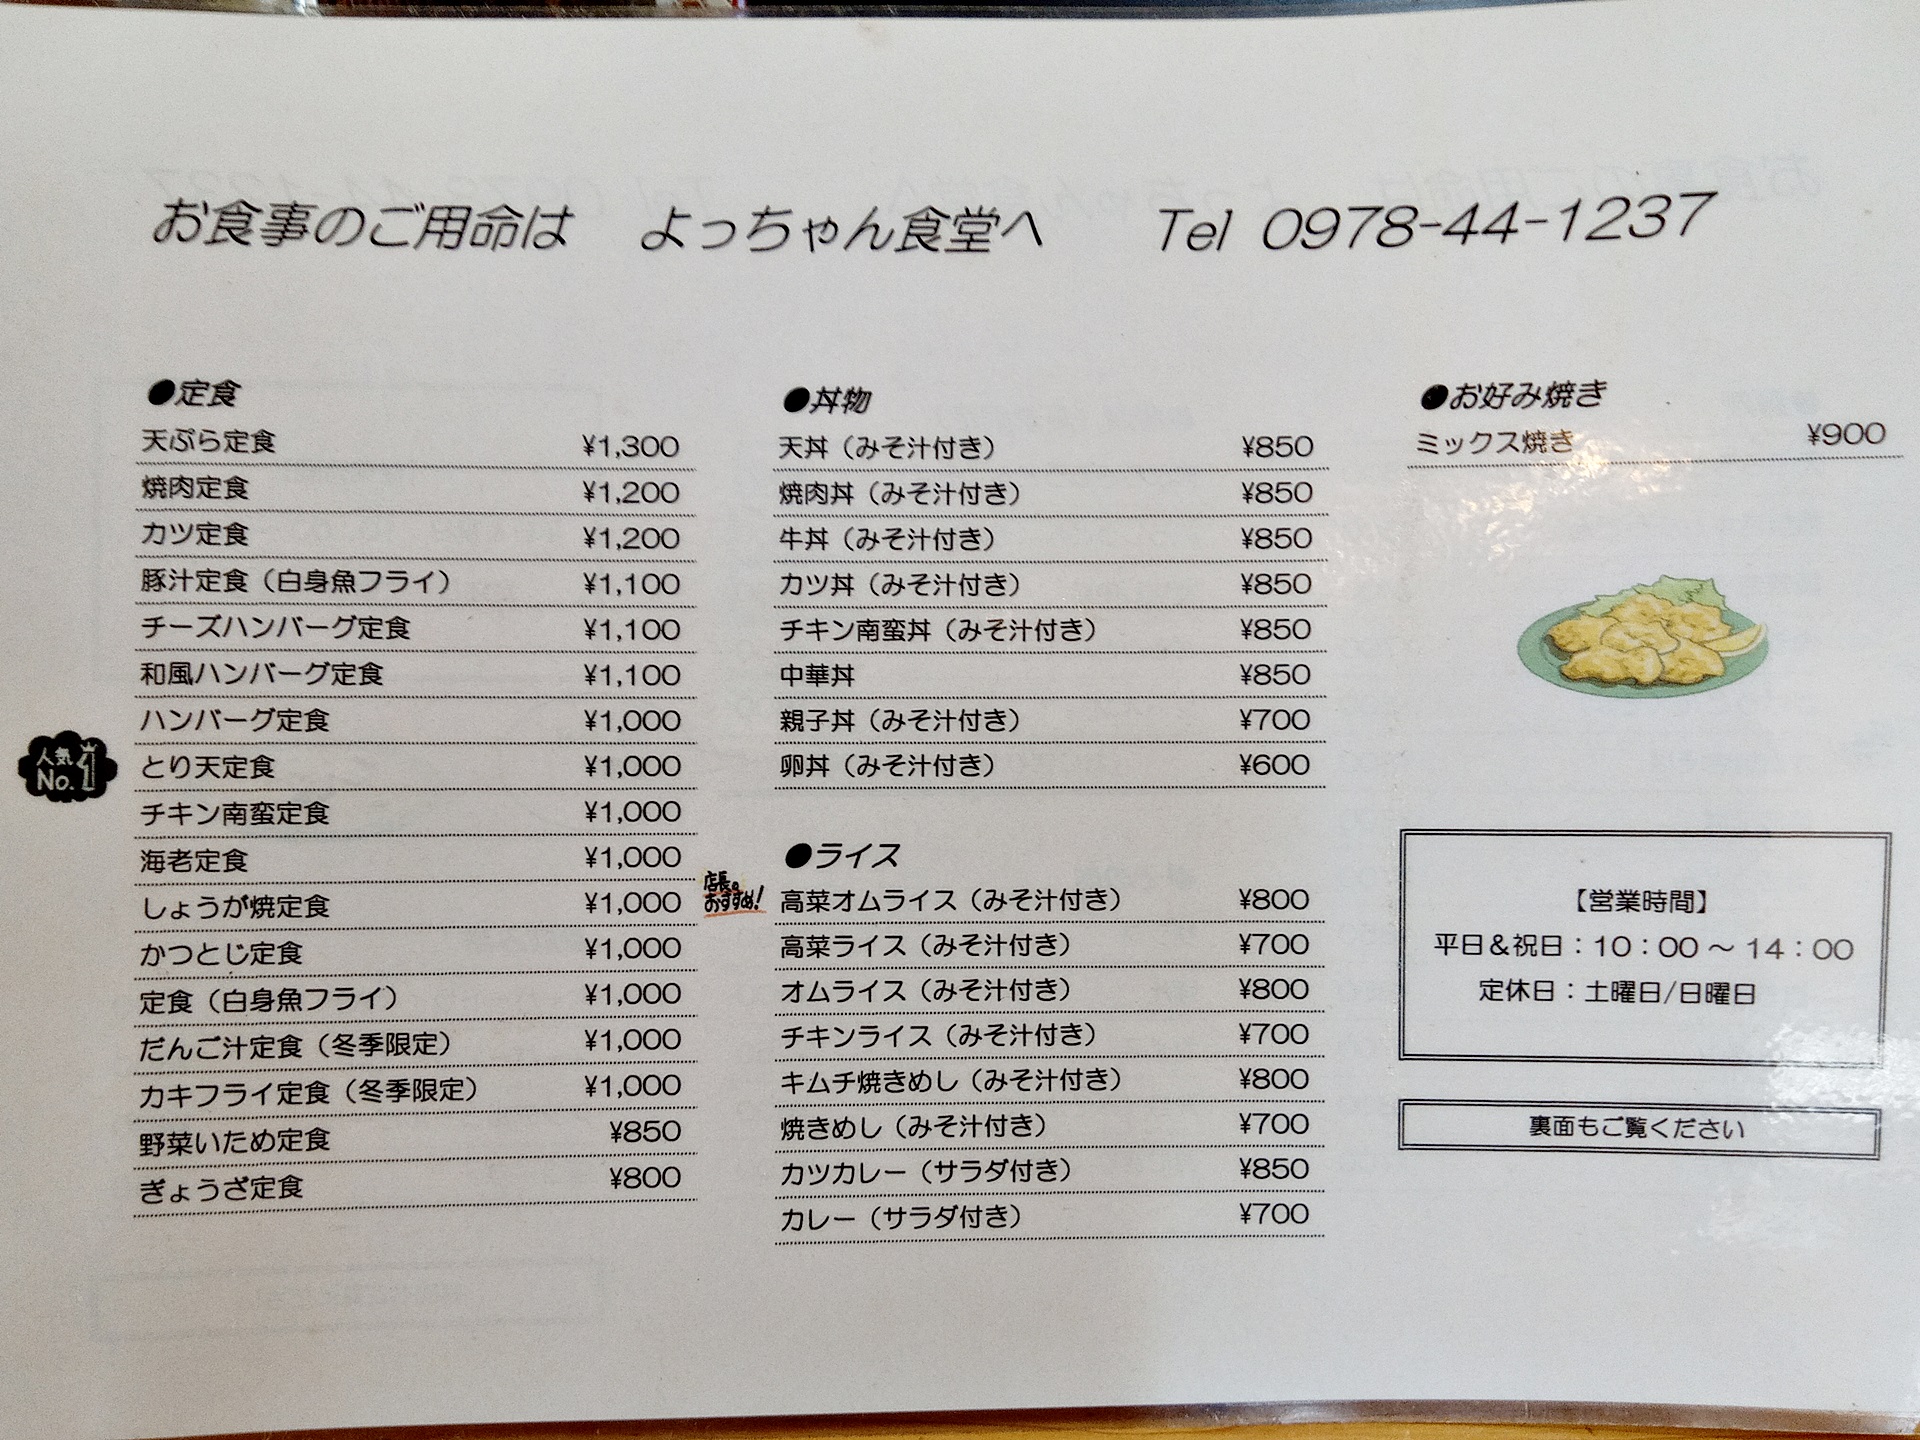 お食事のご用命は よっちゃん食堂へ Tel 0978-44-1237
●定食
天ぷら定食 ¥1,300
焼肉定食 ¥1,200
カツ定食 ¥1,200
豚汁定食（白身魚フライ） ¥1,100
チーズハンバーグ定食 ¥1,100
和風ハンバーグ定食 ¥1,100
ハンバーグ定食 ¥1,000
人気
No.1
とり天定食 ¥1,000
チキン南蛮定食 ¥1,000
海老定食 ¥1,000
しょうが焼定食 ¥1,000
かつとじ定食 ¥1,000
定食（白身魚フライ） ¥1,000
だんご汁定食（冬季限定） ¥1,000
カキフライ定食（冬季限定） ¥1,000
野菜いため定食 ¥850
ぎょうざ定食 ¥800
●丼物
天丼（みそ汁付き） ¥850
焼肉丼（みそ汁付き） ¥850
牛丼（みそ汁付き） ¥850
カツ丼（みそ汁付き） ¥850
チキン南蛮丼（みそ汁付き） ¥850
中華丼 ¥850
親子丼（みそ汁付き） ¥700
卵丼（みそ汁付き） ¥600
●ライス
店長の
おすすめ！
高菜オムライス（みそ汁付き） ¥800
高菜ライス（みそ汁付き） ¥700
オムライス（みそ汁付き） ¥800
チキンライス（みそ汁付き） ¥700
キムチ焼きめし（みそ汁付き） ¥800
焼きめし（みそ汁付き） ¥700
カツカレー（サラダ付き） ¥850
カレー（サラダ付き） ¥700
●お好み焼き
ミックス焼き ¥900
【営業時間】
平日＆祝日：10：00～14：00
定休日：土曜日/日曜日
裏面もご覧ください